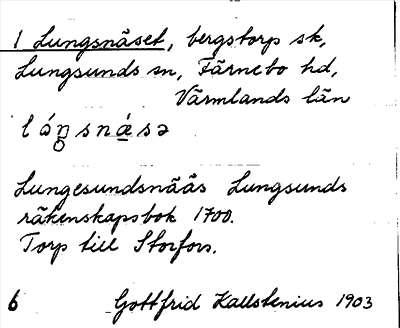 1 Lungsnäset, bergstorp sk,
Lungsunds sn, Färnebo hd,
Värmlands län
lóŋ̥snä́sə
Lungesundsnääs Lungsunds
räkenskapsbok 1700.
Torp till Storfors.
6 Gottfrid Kallstenius 1903